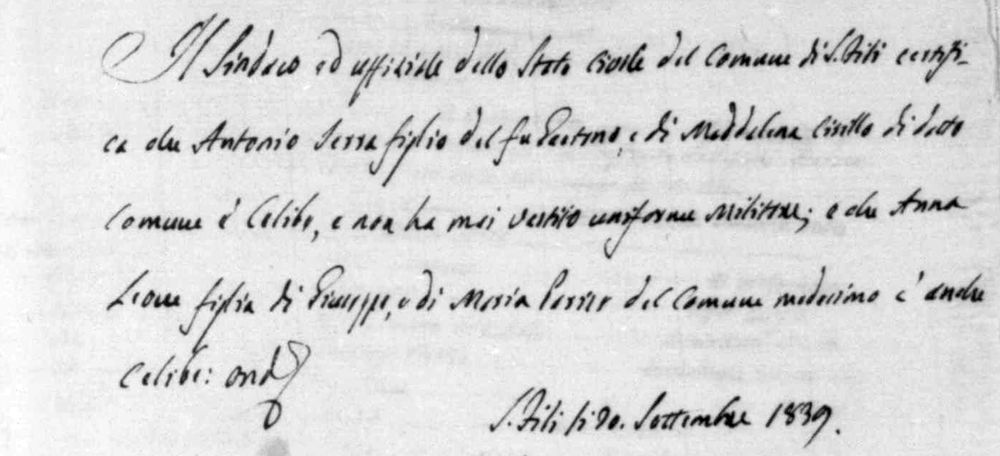 Il Sindaco ed uffiziale dello Stato Civile del Comune di S. Fili certifi-
ca che Antonio Serra figlio del fu Gaetano, e di Maddalena Cirillo di detto
Comune è Celibe, e non ha mai vestito uniforme Militare; e che Anna
Leone figlia di Giuseppe, e di Maria Perrer del Comune medesimo è anche
Celibe: ond
S. Fili li 20. Settembre 1839.